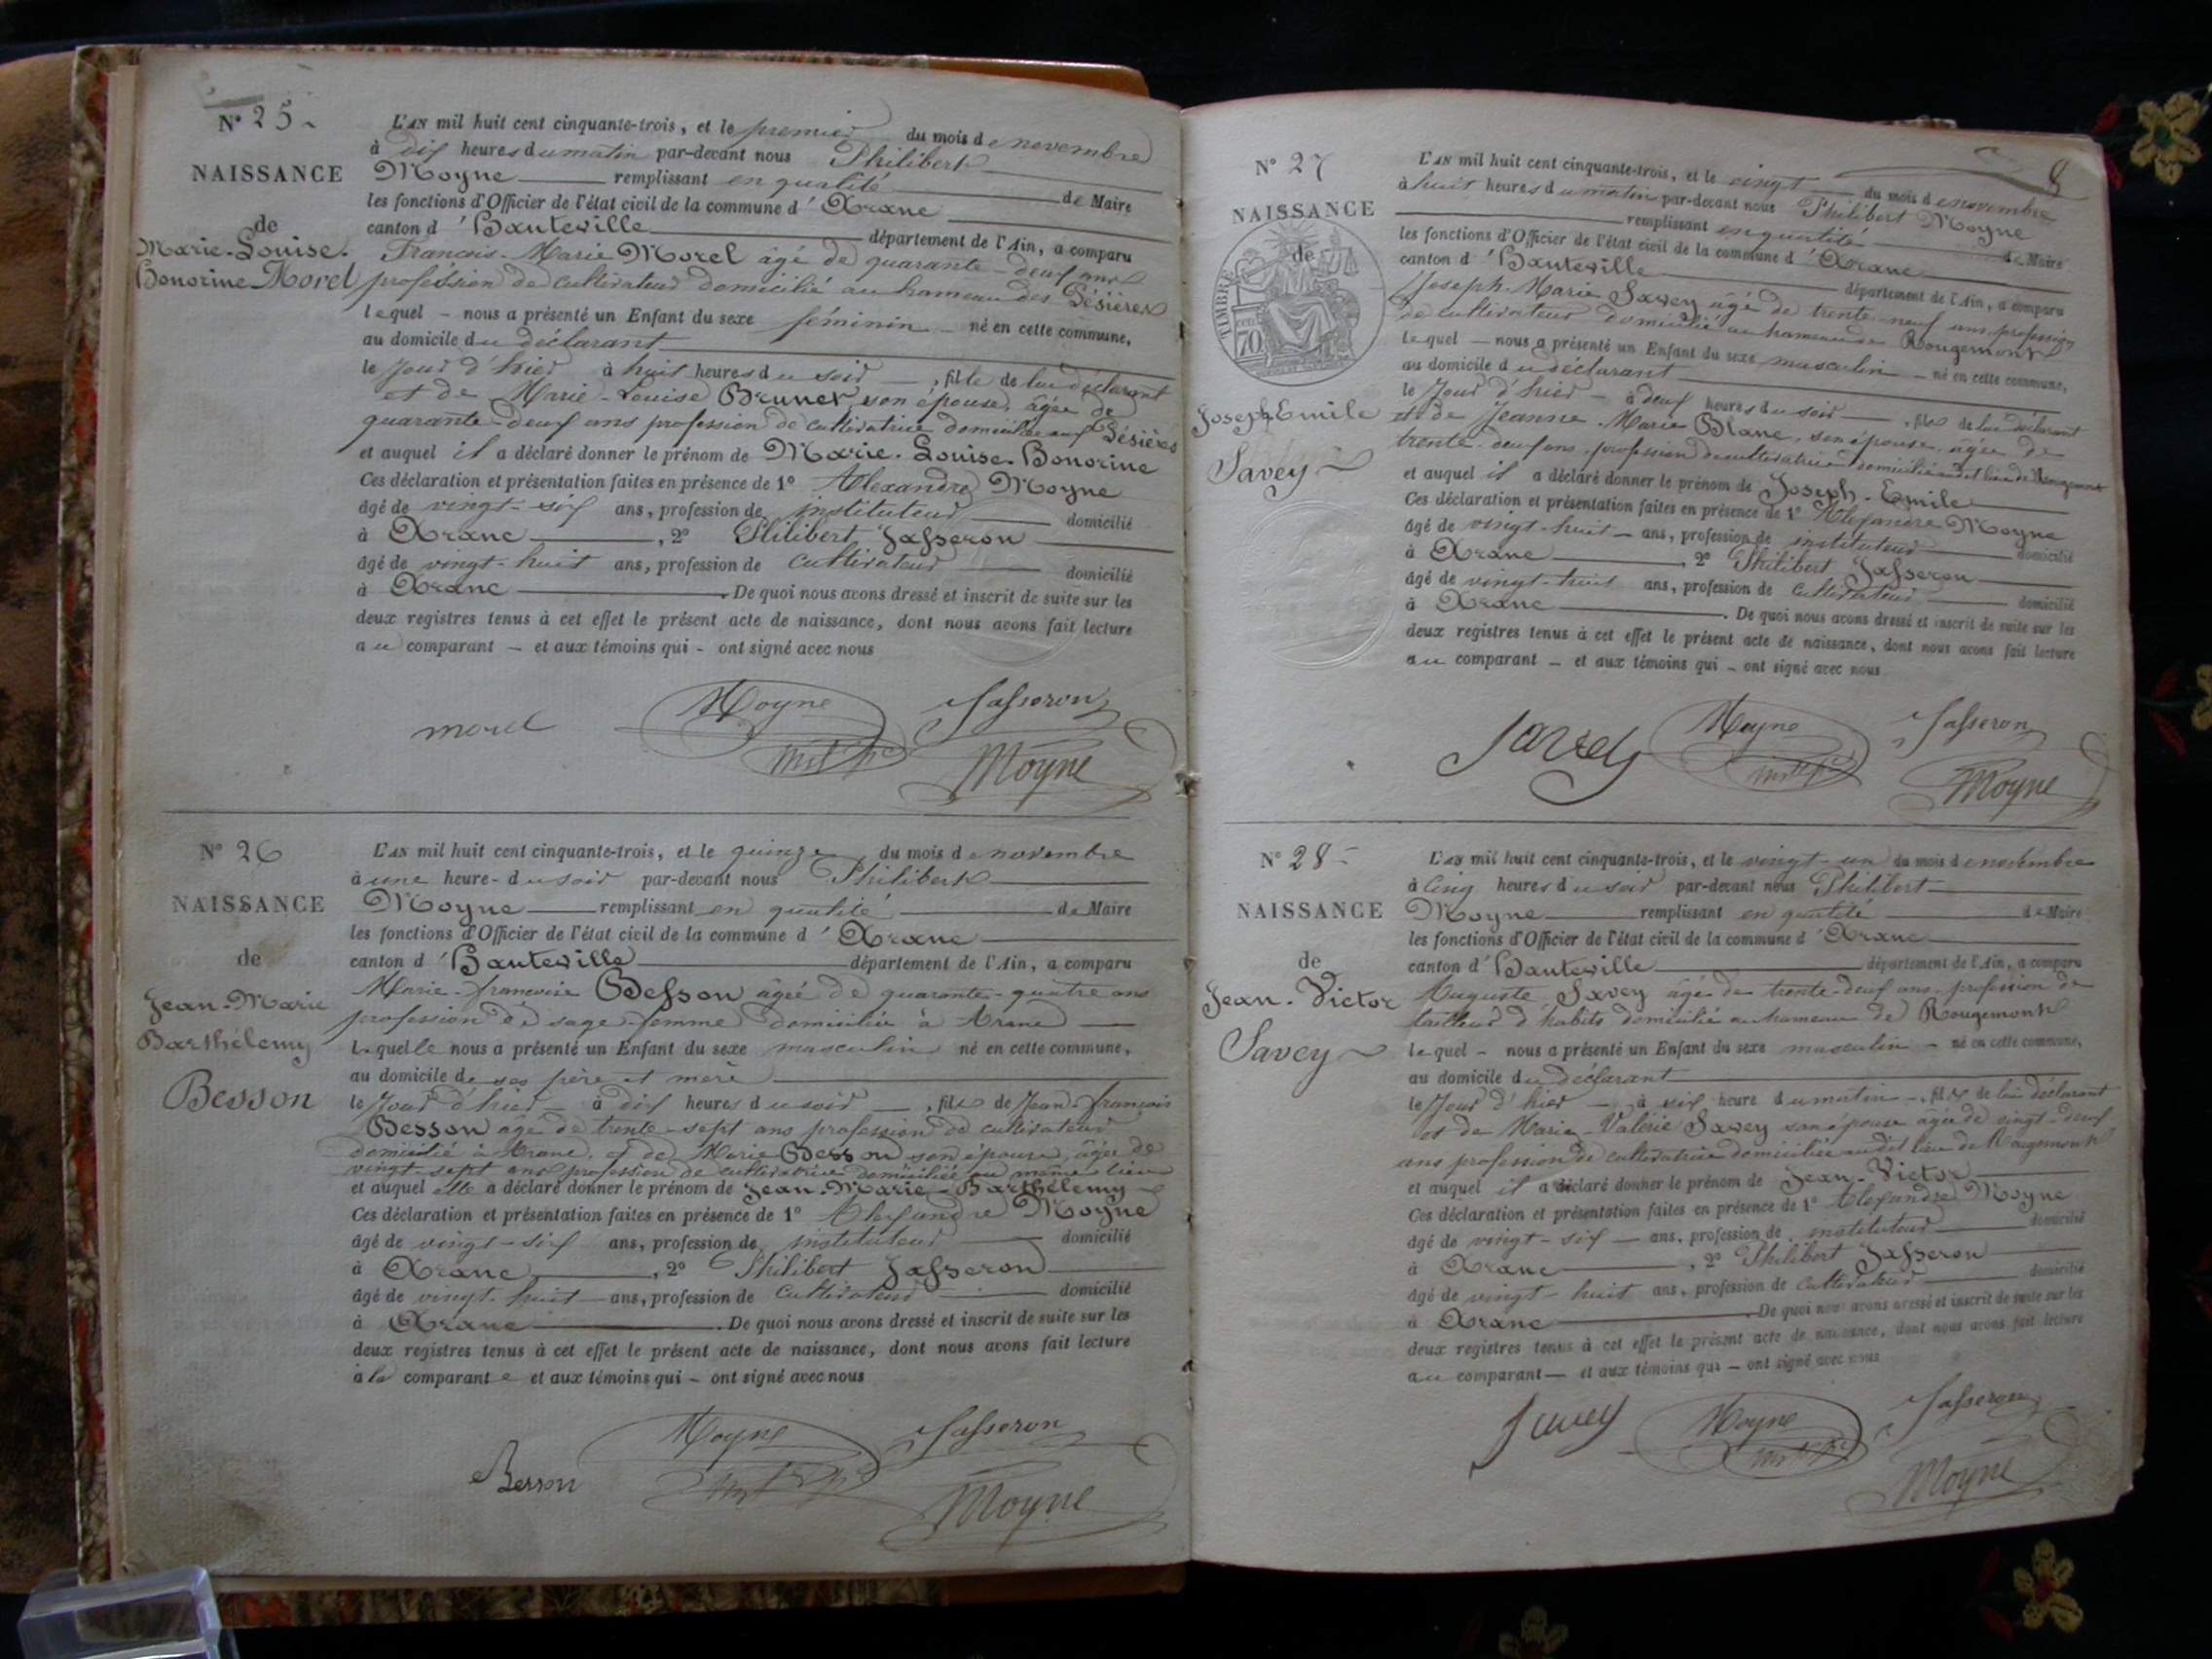 N° 25
NAISSANCE
de
Marie-Louise-
Honorine Morel
L'AN mil huit cent cinquante-trois, et le premier du mois de novembre
à dix heures du matin par-devant nous Philibert
Moyne remplissant en qualité de Maire
les fonctions d'Officier de l'état civil de la commune d'Aranc
canton d'Hauteville département de l'Ain, a comparu
François-Marie Morel âgé de quarante-deux ans
profession de cultivateur domicilié au hameau des Gésières
lequel - nous a présenté un Enfant du sexe féminin né en cette commune,
au domicile du déclarant
le jour d'hier à huit heures du soir, fille de lui déclarant
et de Marie-Louise Brunet son épouse, âgée de
quarante-deux ans profession de cultivatrice domiciliée aux Gésières
et auquel il a déclaré donner le prénom de Marie-Louise-Honorine
Ces déclaration et présentation faites en présence de 1° Alexandre Moyne
âgé de vingt-six ans, profession de instituteur domicilié
à Aranc, 2° Philibert Jasseron
âgé de vingt-huit ans, profession de cultivateur domicilié
à Aranc. De quoi nous avons dressé et inscrit de suite sur les
deux registres tenus à cet effet le présent acte de naissance, dont nous avons fait lecture
au comparant - et aux témoins qui - ont signé avec nous
morel Moyne Jasseron
Moyne
N° 26
NAISSANCE
de
Jean-Marie
Barthélemy
Besson
L'AN mil huit cent cinquante-trois, et le quinze du mois de novembre
à une heure - du soir par-devant nous Philibert
Moyne remplissant en qualité de Maire
les fonctions d'Officier de l'état civil de la commune d'Aranc
canton d'Hauteville département de l'Ain, a comparu
Marie-françoise Besson âgée de quarante-quatre ans
profession de sage-femme domiciliée à Aranc
laquelle nous a présenté un Enfant du sexe masculin né en cette commune,
au domicile de ses père et mère
le jour d'hier à dix heures du soir, fils de Jean-françois
Besson âgé de trente-sept ans profession de cultivateur
domicilié à Aranc, et de Marie Besson son épouse, âgée de
vingt-sept ans profession de cultivatrice domiciliée au même lieu
et auquel elle a déclaré donner le prénom de Jean-Marie-Barthélemy
Ces déclaration et présentation faites en présence de 1° Alexandre Moyne
âgé de vingt-six ans, profession de instituteur domicilié
à Aranc, 2° Philibert Jasseron
âgé de vingt-huit ans, profession de cultivateur domicilié
à Aranc. De quoi nous avons dressé et inscrit de suite sur les
deux registres tenus à cet effet le présent acte de naissance, dont nous avons fait lecture
à la comparante et aux témoins qui - ont signé avec nous
Besson Moyne Jasseron
Moyne
8
N° 27
NAISSANCE
de
TIMBRE
70
Joseph Emile
Savey
L'AN mil huit cent cinquante-trois, et le vingt du mois de novembre
à huit heures du matin par-devant nous Philibert Moyne
remplissant en qualité de Maire
les fonctions d'Officier de l'état civil de la commune d'Aranc
canton d'Hauteville département de l'Ain, a comparu
Joseph-Marie Savey âgé de trente-neuf ans, profession
de cultivateur domicilié au hameau de Rougemont
lequel - nous a présenté un Enfant du sexe masculin - né en cette commune,
au domicile du déclarant
le jour d'hier - à deux heures du soir, fils de lui déclarant
et de Jeanne-Marie Blanc, son épouse, âgée de
trente-deux ans, profession de cultivatrice domiciliée audit lieu de Rougemont
et auquel il a déclaré donner le prénom de Joseph-Emile
Ces déclaration et présentation faites en présence de 1° Alexandre Moyne
âgé de vingt-huit - ans, profession de instituteur domicilié
à Aranc, 2° Philibert Jasseron
âgé de vingt-huit ans, profession de cultivateur domicilié
à Aranc. De quoi nous avons dressé et inscrit de suite sur les
deux registres tenus à cet effet le présent acte de naissance, dont nous avons fait lecture
au comparant - et aux témoins qui - ont signé avec nous
Savey Moyne Jasseron
Moyne
N° 28
NAISSANCE
de
Jean-Victor
Savey
L'AN mil huit cent cinquante-trois, et le vingt-un du mois de novembre
à cinq heures du soir par-devant nous Philibert
Moyne remplissant en qualité de Maire
les fonctions d'Officier de l'état civil de la commune d'Aranc
canton d'Hauteville département de l'Ain, a comparu
Auguste Savey âgé de trente-deux ans, profession de
tailleur d'habits domicilié au hameau de Rougemont
lequel - nous a présenté un Enfant du sexe masculin - né en cette commune,
au domicile du déclarant
le jour d'hier - à six heure du matin -, fils de lui déclarant
et de Marie-Valérie Savey son épouse âgée de vingt-deux
ans profession de cultivatrice domiciliée audit lieu de Rougemont
et auquel il a déclaré donner le prénom de Jean-Victor
Ces déclaration et présentation faites en présence de 1° Alexandre Moyne
âgé de vingt-six - ans, profession de instituteur domicilié
à Aranc, 2° Philibert Jasseron
âgé de vingt-huit ans, profession de cultivateur domicilié
à Aranc. De quoi nous avons dressé et inscrit de suite sur les
deux registres tenus à cet effet le présent acte de naissance, dont nous avons fait lecture
au comparant - et aux témoins qui - ont signé avec nous
Savey Moyne Jasseron
Moyne